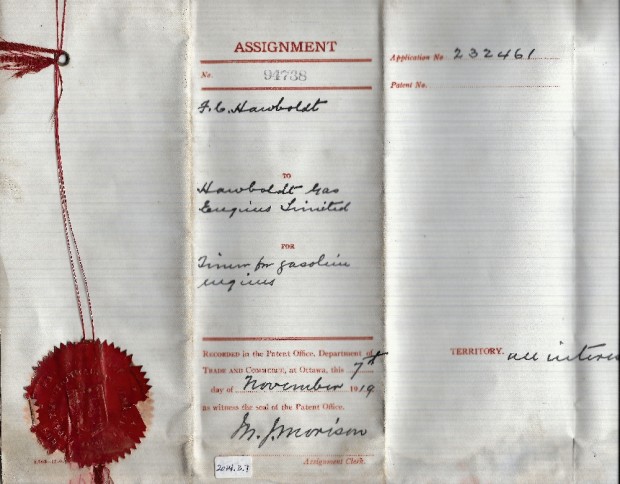 ASSIGNMENT
No. 94738
F. C. Hawboldt
TO
Hawboldt Gas
Engines Limited
FOR
Timer for gasoline
engines
RECORDED in the Patent Office, Department of
TRADE AND COMMERCE, at Ottawa, this 7th
day of November 1919
as witness the seal of the Patent Office.
M. J. Morison
Assignment Clerk.
Application No 232461
Patent No.
TERRITORY. all interes